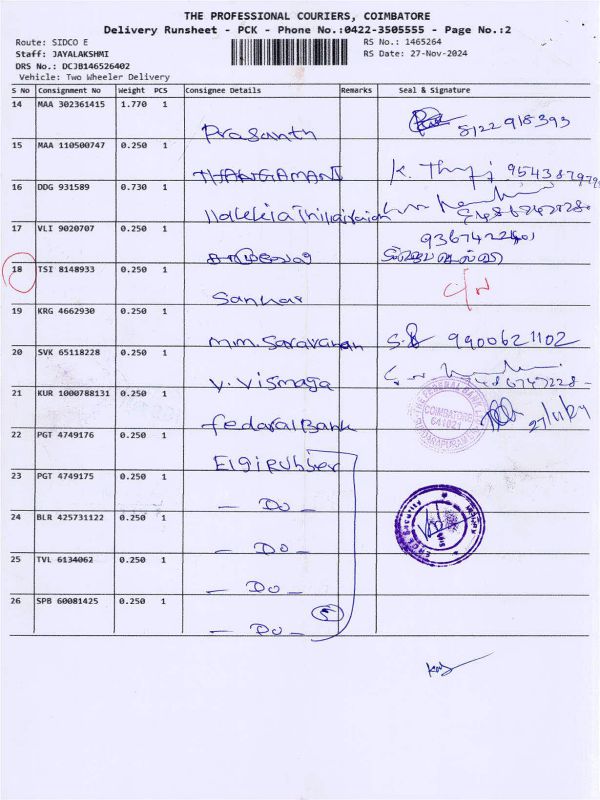 THE PROFESSIONAL COURIERS, COIMBATORE
Delivery Runsheet - PCK - Phone No.:0422-3505555 - Page No.:2
Route: SIDCO E RS No.: 1465264
Staff: JAYALAKSHMI RS Date: 27-Nov-2024
DRS No.: DCJB146526402
Vehicle: Two Wheeler Delivery
S No Consignment No Weight PCS Consignee Details Remarks Seal & Signature
14 MAA 302361415 1.770 1
Prasanth 8122918393
15 MAA 110500747 0.250 1
THANGAMANI
16 DDG 931589 0.730 1
17 VLI 9020707 0.250 1
18 TSI 8148933 0.250 1
Sankar
19 KRG 4662930 0.250 1
m.m. Saravanan 9900621102
20 SVK 65118228 0.250 1
V. Vismaya
21 KUR 1000788131 0.250 1
THE FEDERAL BANK
COIMBATORE
641021
federal Bank 27/11/24
22 PGT 4749176 0.250 1
Elgi Rubber
23 PGT 4749175 0.250 1
- Do -
24 BLR 425731122 0.250 1
- Do -
25 TVL 6134062 0.250 1
- Do -
26 SPB 60081425 0.250 1
5
- Do -